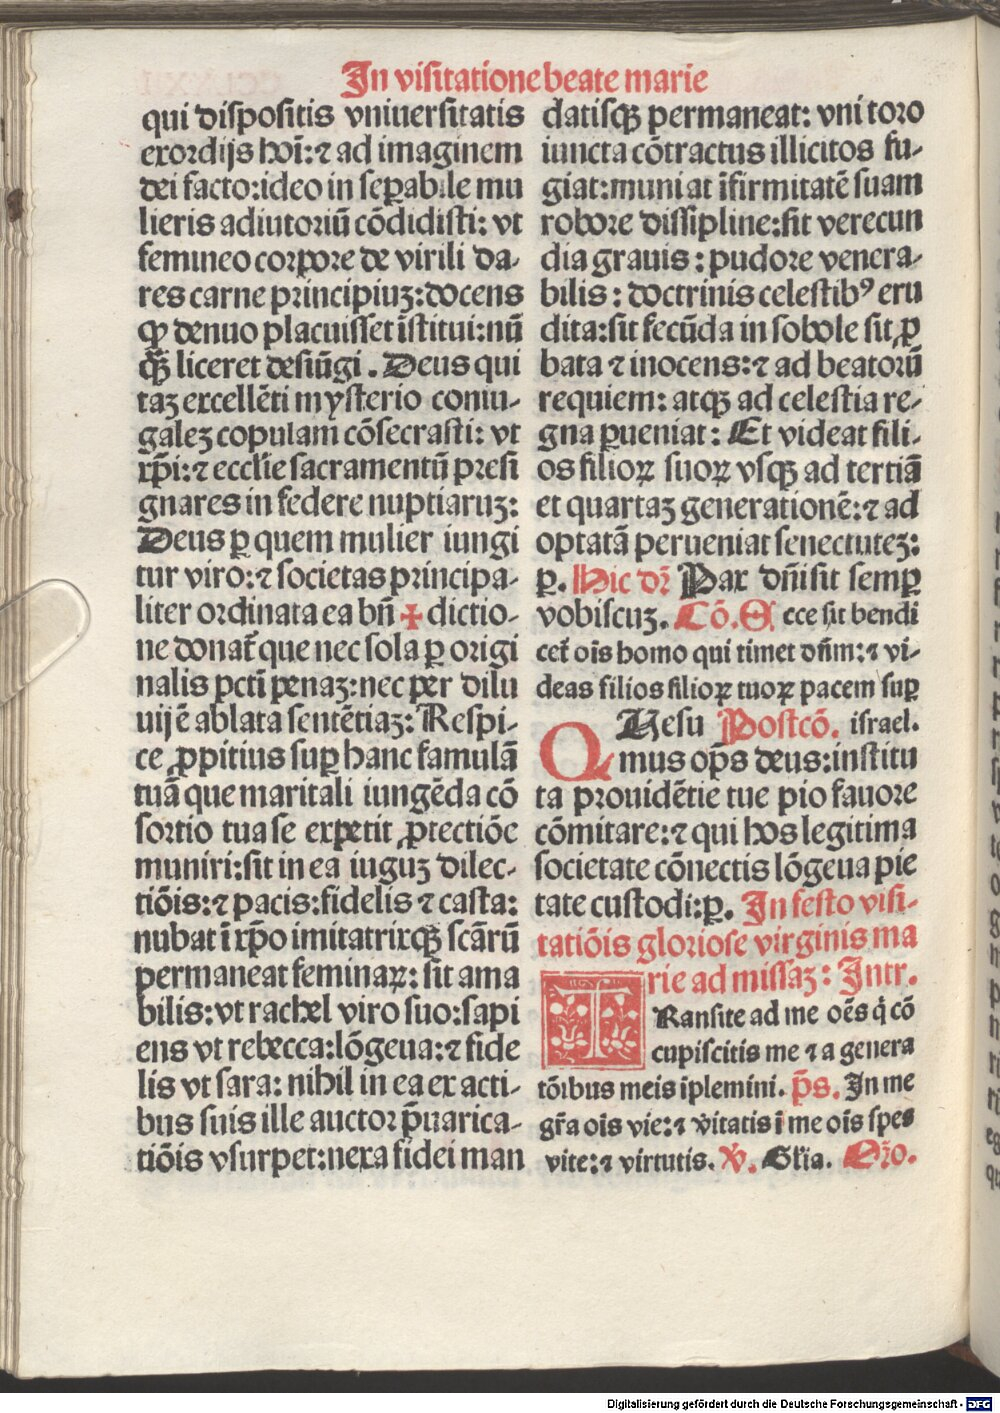 In visitatione beate marie
qui dispositis vniuersitatis
exordijs hoı̄: ⁊ ad imaginem
dei facto: ideo inseꝑabile mu
lieris adiutoriū cōdidisti: vt
femineo corpore de virili da-
res carne principiuꝫ: docens
ꝙ denuo placuisset īstitui: nū
ꝙ̄ liceret desiūgi. Deus qui
taꝫ excellēti mysterio coniu-
galeꝫ copulam cōsecrasti: vt
xp̄i: ⁊ eccl̄ie sacramentū presi
gnares in federe nuptiaruꝫ:
Deus ꝑ quem mulier iungi
tur viro: ⁊ societas principa-
liter ordinata ea bn̄ ✠ dictio-
ne donat᷑ que nec sola ꝑ origi
nalis pct̄i penaꝫ: nec per dilu
uij ē ablata sentētiaꝫ: Respi-
ce ꝓpitius suꝑ hanc famulā
tuā que maritali iungēda cō
sortio tua se expetit ꝓtectiōe
muniri: sit in ea iuguꝫ dilec-
tiōis: ⁊ pacis: fidelis ⁊ casta:
nubat ī xp̄o imitatrixqꝫ scārū
permaneat feminaꝝ: sit ama
bilis: vt rachel viro suo: sapi
ens vt rebecca: lōgeua: ⁊ fide
lis vt sara: nihil in ea ex acti-
bus suis ille auctor p̄uarica-
tiōis vsurpet: nexa fidei man
datisqꝫ permaneat: vni toro
iuncta cōtractus illicitos fu-
giat: muniat īfirmitatē suam
robore dissipline: sit verecun
dia grauis: pudore venera-
bilis: doctrinis celestibꝰ eru
dita: sit fecūda in sobole sit ꝓ
bata ⁊ inocens: ⁊ ad beatorū
requiem: atqꝫ ad celestia re-
gna ꝑueniat: Et videat fili-
os filioꝝ suoꝝ vsqꝫ ad tertiā
et quartaꝫ generationē: ⁊ ad
optatā perueniat senectuteꝫ:
ꝑ. Hic dr̄ Pax dn̄i sit semꝑ
vobiscuꝫ. Cō. Ecce sit bendi
cet᷑ oīs homo qui timet dn̄m: ⁊ vi-
deas filios filioꝝ tuoꝝ pacem suꝑ
Quesu Postcō. israel.
mus op̄s deus: institu
ta prouidētie tue pio fauore
cōmitare: ⁊ qui hos legitima
societate cōnectis lōgeua pie
tate custodi: ꝑ. In festo visi-
tatiōis gloriose virginis ma
rie ad missaꝫ: Intr.
TRansite ad me oēs q̇ cō
cupiscitis me ⁊ a genera
tōibus meis īplemini. p̄s. In me
gr̄a oīs vie: ⁊ v̄itatis ī me oīs spes
vite: ⁊ virtutis. V̄. Gl̄ia. Or̄o.
Digitalisierung gefördert durch die Deutsche Forschungsgemeinschaft - DFG